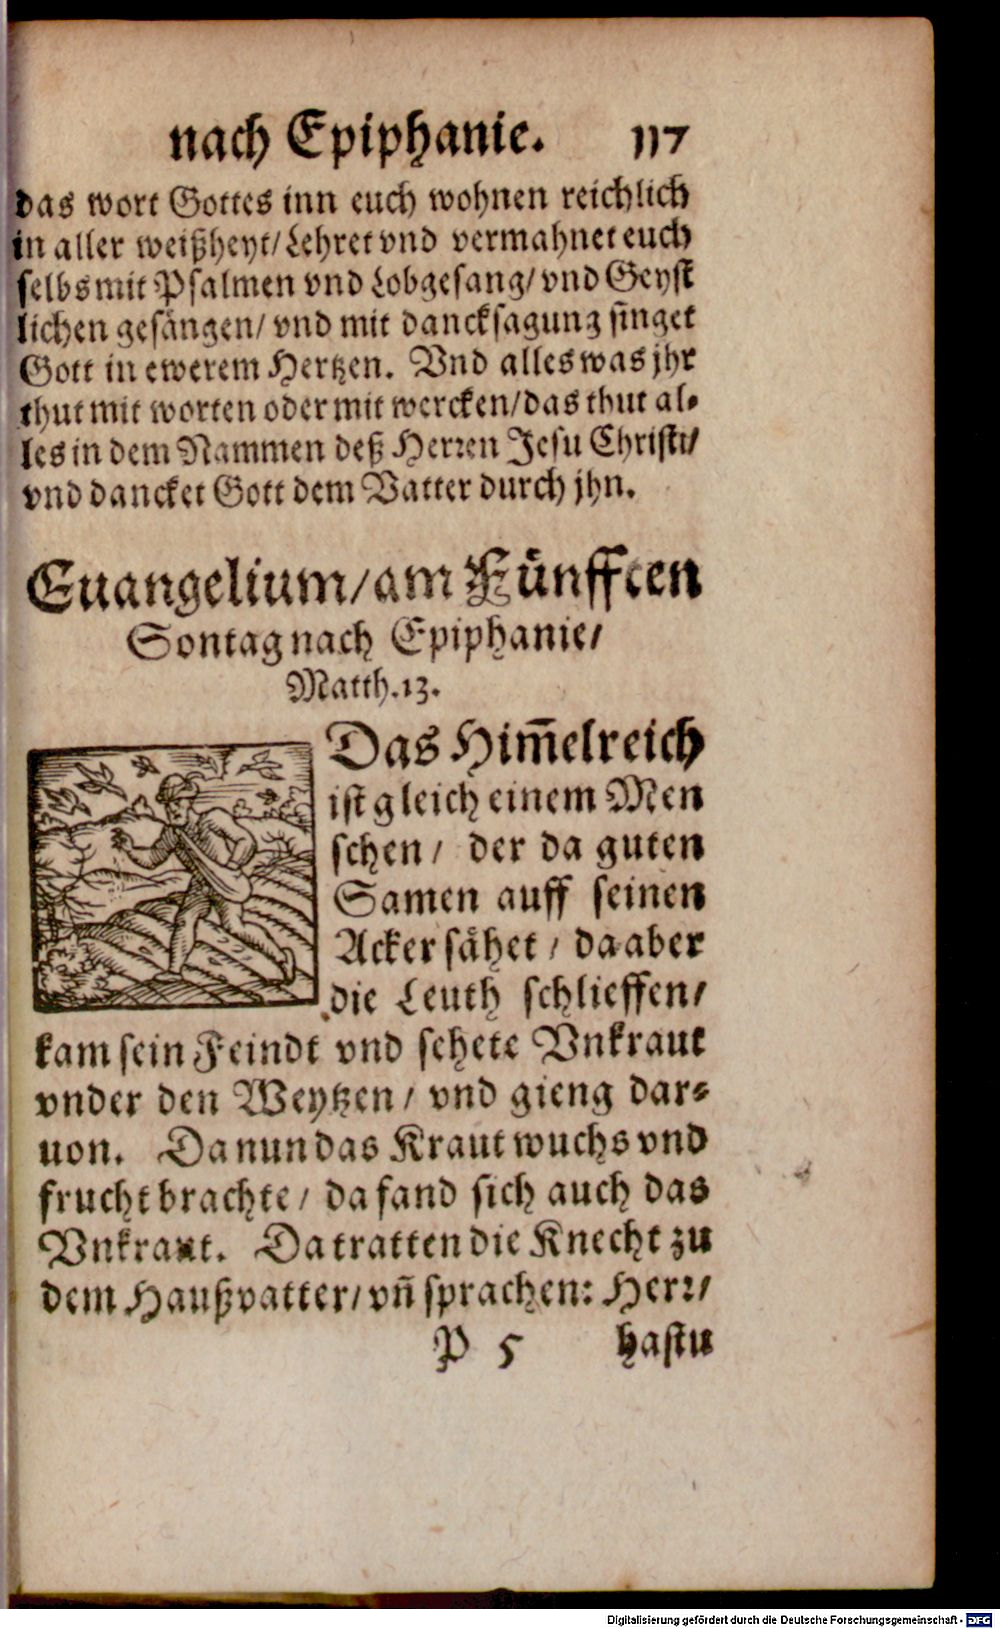 nach Epiphanie. 117
das wort Gottes inn euch wohnen reichlich
in aller weißheyt/ Lehret vnd vermahnet euch
selbs mit Psalmen vnd Lobgesang/ vnd Geyst
lichen gesängen/ vnd mit dancksagung singet
Gott in ewerem Hertzen. Vnd alles was jhr
thut mit worten oder mit wercken/ das thut al-
les in dem Nammen deß Herren Jesu Christi/
vnd dancket Gott dem Vatter durch jhn.
Euangelium/ am Fünfften
Sontag nach Epiphanie/
Matth. 13.
Das Him̃elreich
ist gleich einem Men
schen/ der da guten
Samen auff seinen
Acker sähet/ da aber
die Leuth schlieffen/
kam sein Feindt vnd sehete Vnkraut
vnder den Weytzen/ vnd gieng dar-
uon. Da nun das Kraut wuchs vnd
frucht brachte/ da fand sich auch das
Vnkraut. Da tratten die Knecht zu
dem Haußvatter/ vñ sprachen: Herr/
P 5 hastu
Digitalisierung gefördert durch die Deutsche Forschungsgemeinschaft - DFG